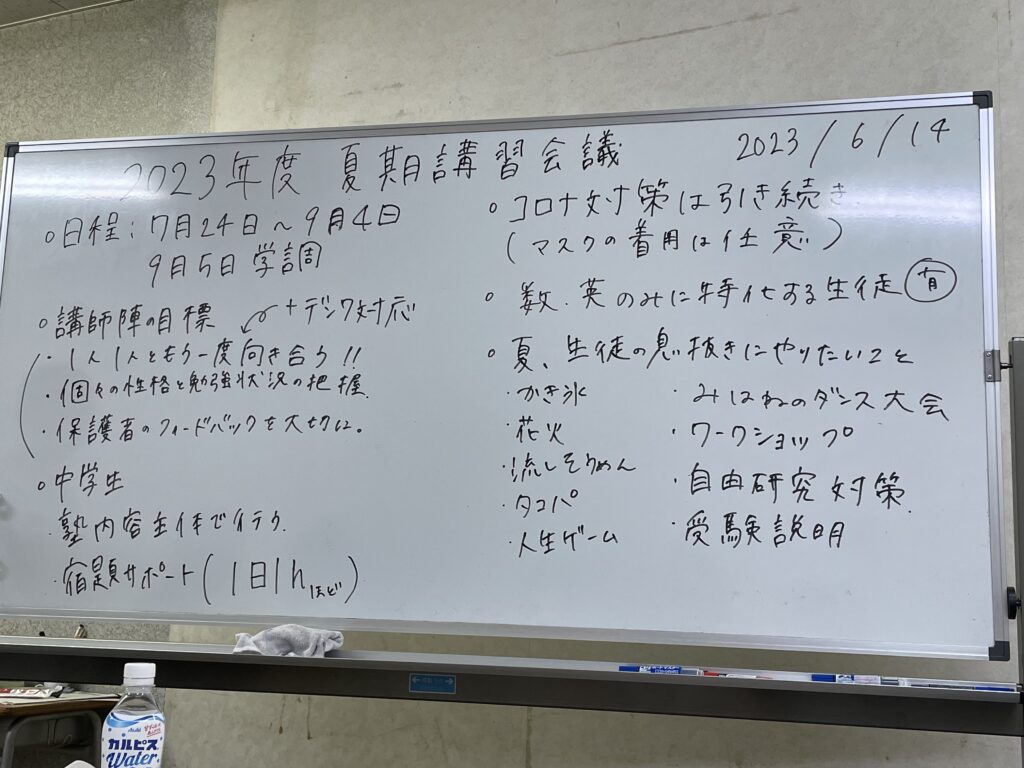 2023年度 夏期講習会議
2023/6/14
○日程：7月24日～9月4日
9月5日 学調
○講師陣の目標
+デジタル対応
・1人1人ともう一度向き合う!!
・個々の性格と勉強状況の把握.
・保護者のフィードバックを大切に。
○中学生
塾内容主体で行う.
・宿題サポート(1日1hほど)
○コロナ対策は引き続き.
(マスクの着用は任意)
○数.英のみに特化する生徒 有
○夏、生徒の息抜きにやりたいこと
・かき氷
・花火
・流しそうめん
・タコパ
・人生ゲーム
・みはねのダンス大会
・ワークショップ
・自由研究対策.
・受験説明
Asahi
カルピス
Water